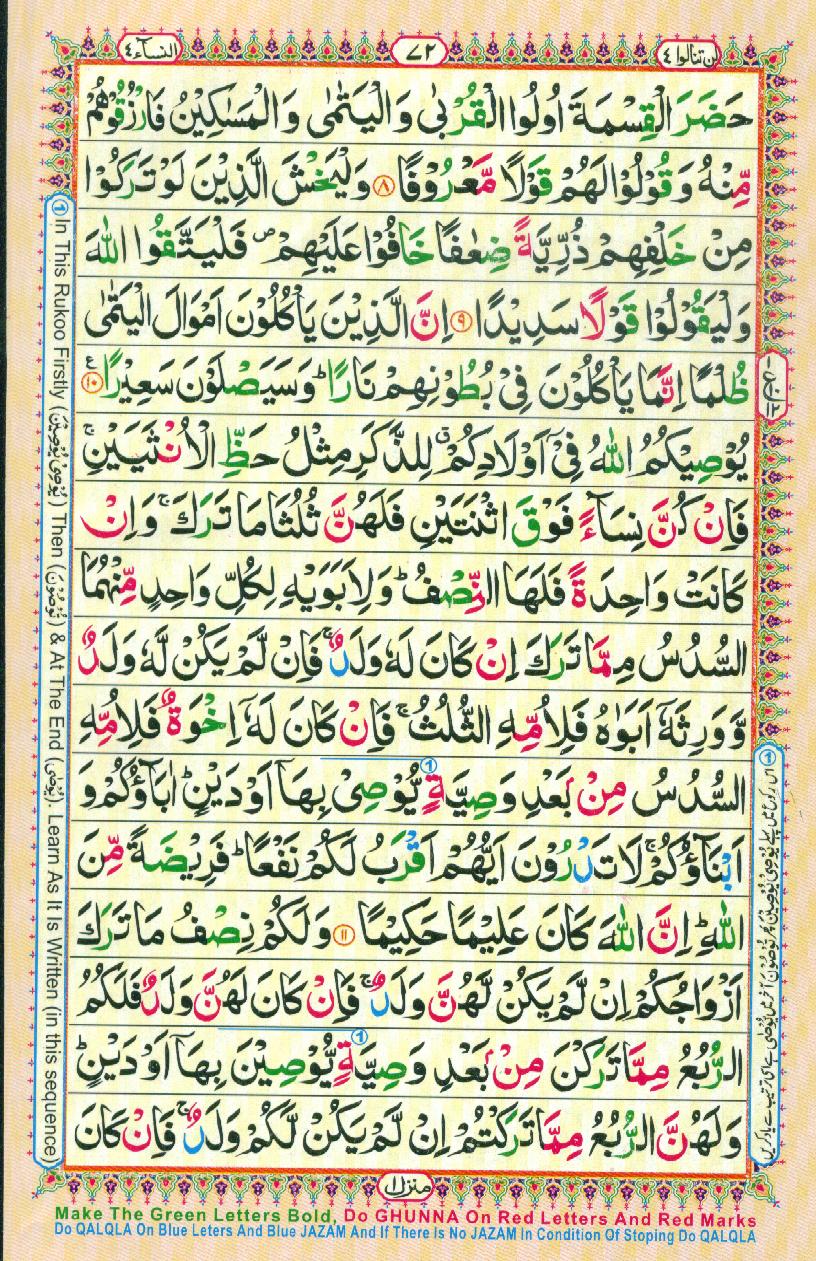 لن تنالوا ٤
٧٢
النسآء ٤
حَضَرَ الْقِسْمَةَ اُولُوا الْقُرْبٰى وَالْيَتٰمٰى وَالْمَسٰكِيْنُ فَارْزُقُوْهُمْ
مِّنْهُ وَقُوْلُوْا لَهُمْ قَوْلًا مَّعْرُوْفًا ۝٨ وَلْيَخْشَ الَّذِيْنَ لَوْ تَرَكُوْا
مِنْ خَلْفِهِمْ ذُرِّيَّةً ضِعٰفًا خَافُوْا عَلَيْهِمْ ۖ فَلْيَتَّقُوا اللّٰهَ
وَلْيَقُوْلُوْا قَوْلًا سَدِيْدًا ۝٩ اِنَّ الَّذِيْنَ يَاْكُلُوْنَ اَمْوَالَ الْيَتٰمٰى
ظُلْمًا اِنَّمَا يَاْكُلُوْنَ فِيْ بُطُوْنِهِمْ نَارًا ؕ وَسَيَصْلَوْنَ سَعِيْرًا ۝١٠
يُوْصِيْكُمُ اللّٰهُ فِيْٓ اَوْلَادِكُمْ ۗ لِلذَّكَرِ مِثْلُ حَظِّ الْاُنْثَيَيْنِ ۚ
فَاِنْ كُنَّ نِسَآءً فَوْقَ اثْنَتَيْنِ فَلَهُنَّ ثُلُثَا مَا تَرَكَ ۚ وَاِنْ
كَانَتْ وَاحِدَةً فَلَهَا النِّصْفُ ؕ وَلِاَبَوَيْهِ لِكُلِّ وَاحِدٍ مِّنْهُمَا
السُّدُسُ مِمَّا تَرَكَ اِنْ كَانَ لَهٗ وَلَدٌ ۚ فَاِنْ لَّمْ يَكُنْ لَّهٗ وَلَدٌ
وَّوَرِثَهٗٓ اَبَوٰهُ فَلِاُمِّهِ الثُّلُثُ ۚ فَاِنْ كَانَ لَهٗٓ اِخْوَةٌ فَلِاُمِّهِ
السُّدُسُ مِنْۢ بَعْدِ وَصِيَّةٍ يُّوْصِيْ بِهَآ اَوْ دَيْنٍ ؕ اٰبَآؤُكُمْ وَ
اَبْنَآؤُكُمْ ۚ لَا تَدْرُوْنَ اَيُّهُمْ اَقْرَبُ لَكُمْ نَفْعًا ؕ فَرِيْضَةً مِّنَ
اللّٰهِ ؕ اِنَّ اللّٰهَ كَانَ عَلِيْمًا حَكِيْمًا ۝١١ وَلَكُمْ نِصْفُ مَا تَرَكَ
اَزْوَاجُكُمْ اِنْ لَّمْ يَكُنْ لَّهُنَّ وَلَدٌ ۚ فَاِنْ كَانَ لَهُنَّ وَلَدٌ فَلَكُمُ
الرُّبُعُ مِمَّا تَرَكْنَ مِنْۢ بَعْدِ وَصِيَّةٍ يُّوْصِيْنَ بِهَآ اَوْ دَيْنٍ ؕ
وَلَهُنَّ الرُّبُعُ مِمَّا تَرَكْتُمْ اِنْ لَّمْ يَكُنْ لَّكُمْ وَلَدٌ ۚ فَاِنْ كَانَ
منزل ١
① In This Rukoo Firstly (يُوْصِيْ يُوْصِيْنَ) Then (تُوْصُوْنَ) & At The End (يُوْصٰى). Learn As It Is Written (in this sequence)
Make The Green Letters Bold, Do GHUNNA On Red Letters And Red Marks
Do QALQLA On Blue Leters And Blue JAZAM And If There Is No JAZAM In Condition Of Stoping Do QALQLA